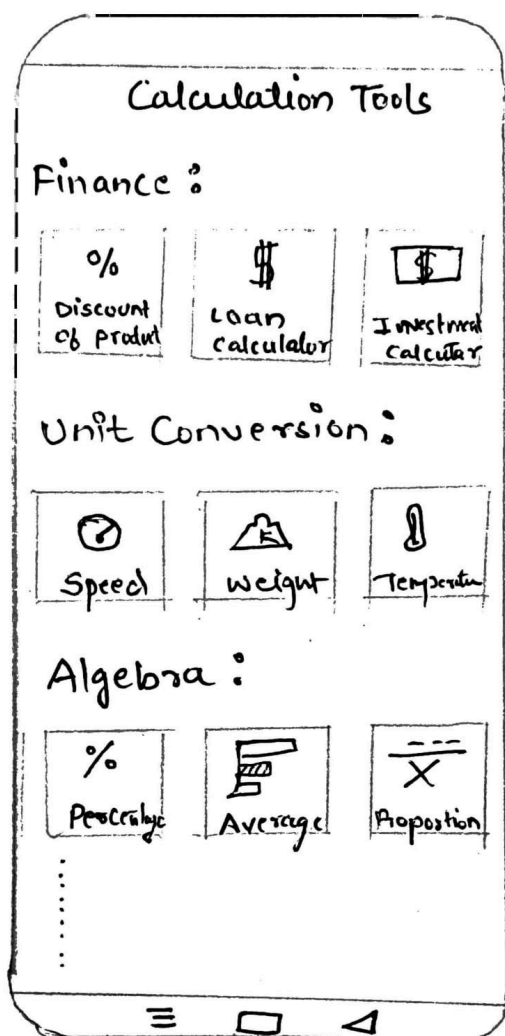 Calculation Tools
Finance :
%
Discount
of product
$
Loan
Calculator
$
Investment
Calcutar
Unit Conversion :
Speed
Weight
Temperatu
Algebra :
%
Percentage
Average
X
Proportion